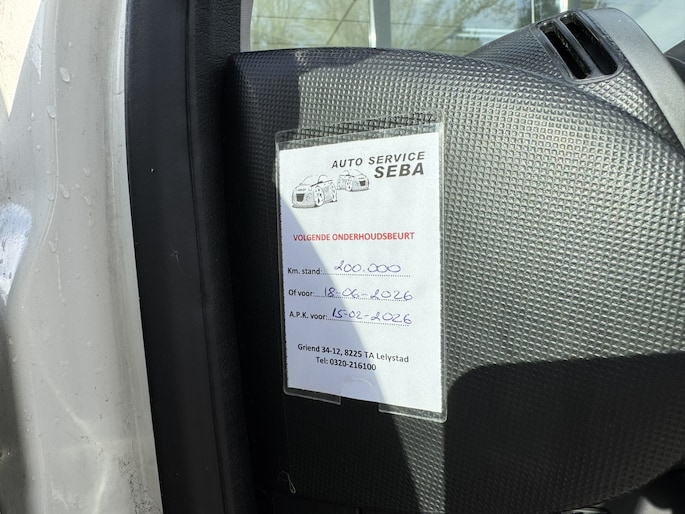 AUTO SERVICE
SEBA
VOLGENDE ONDERHOUDSBEURT
Km. stand: 200.000
Of voor: 18-06-2026
A.P.K. voor: 15-02-2026
Griend 34-12, 8225 TA Lelystad
Tel: 0320-216100